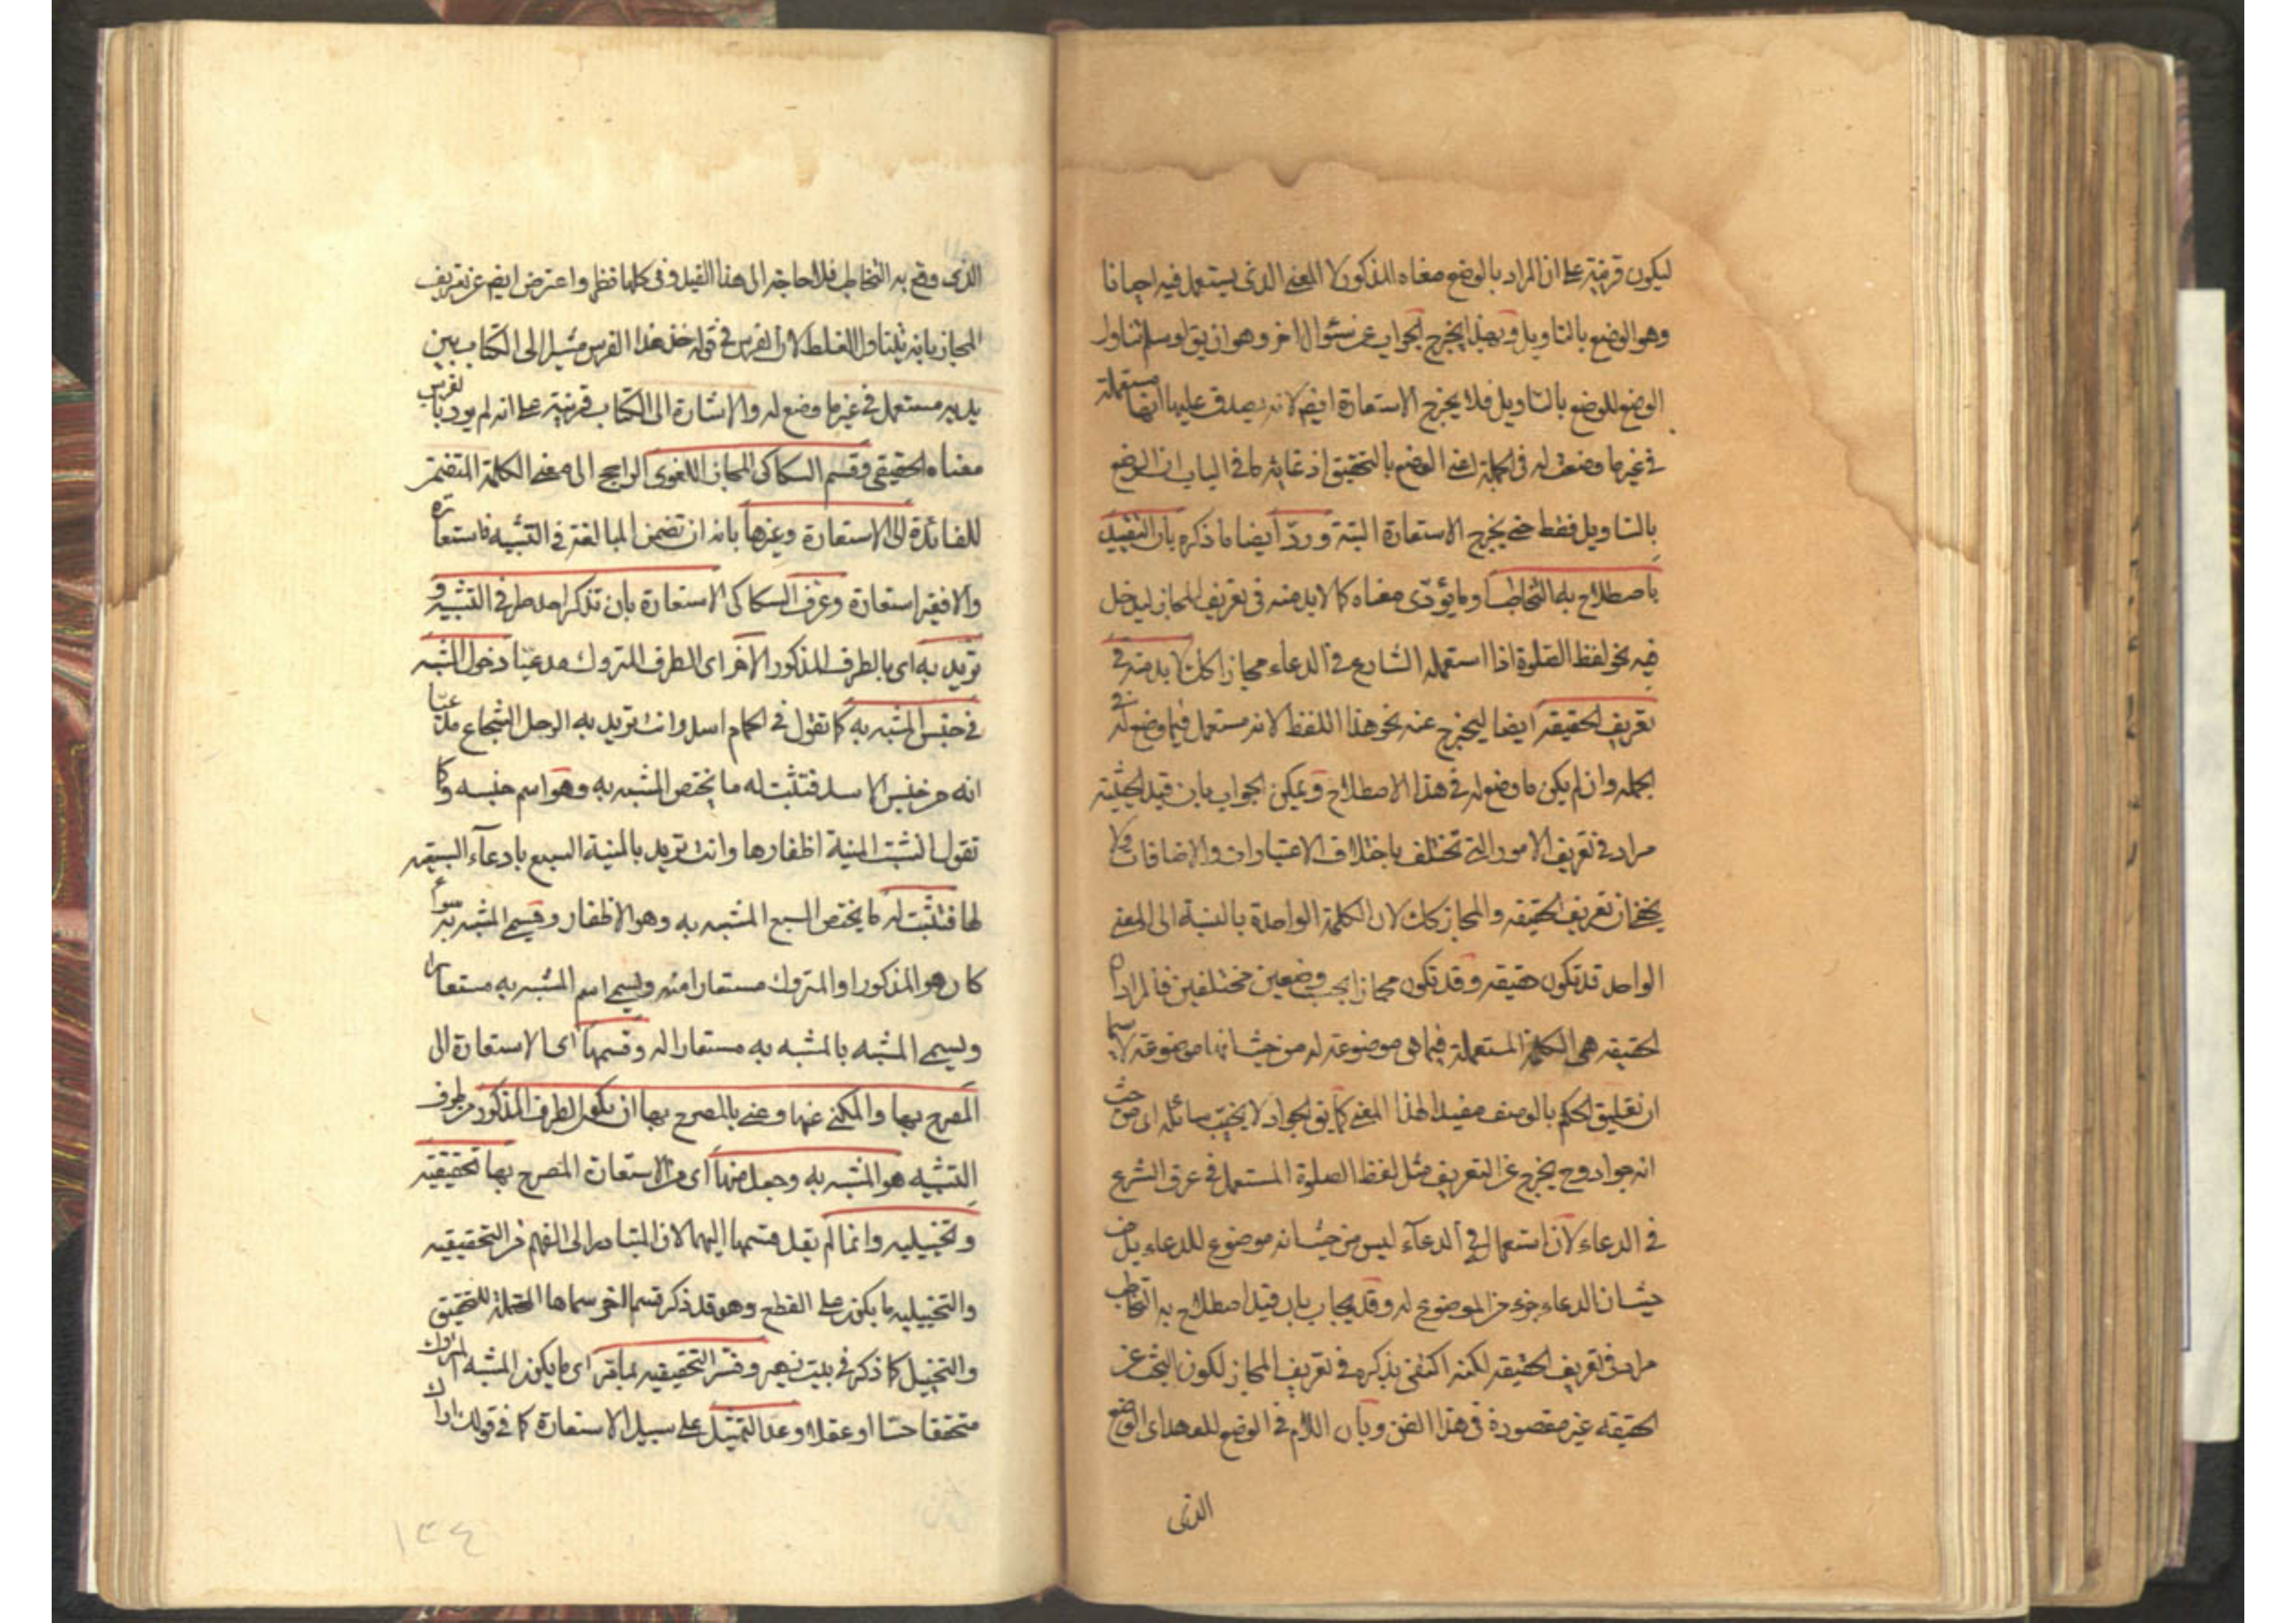 ليكون قرينة على ان المراد بالوضع معناه المذكور لا المعنى الذى يستعمل فيه احيانا
وهو الوضع بالتاويل وبهذا يخرج الجواب عن سئوال اخر وهو ان يق لو سلم تناول
الوضع للوضع بالتاويل فلا يخرج الاستعارة ايض لانه يصدق عليها انها مستعملة
فى غير ما وضعت له فى الجملة اعنى الوضع بالتحقيق اذ غاية ما فى الباب ان الوضع
بالتاويل فقط حتى يخرج الاستعارة البتة وردّ ايضا ما ذكره بان التقييد
باصطلاح به التخاطب او ما يؤدّى معناه كما لابد منه فى تعريف المجاز ليدخل
فيه نحو لفظ الصلوة اذا استعمله الشارع فى الدعاء مجازا كك لابد منه فى
تعريف الحقيقه ايضا ليخرج عنه نحو هذا اللفظ لانه مستعمل فيما وضع له فى
الجمله وان لم يكن ما وضع له فى هذا الاصطلاح ويمكن الجواب بان قيد الحيثية
مراد فى تعريف الامور التى تختلف باختلاف الاعتبارات والاضافات ولا
يخفى ان تعريف الحقيقه والمجاز كك لان الكلمة الواحدة بالنسبة الى المعنى
الواحد قد تكون حقيقه وقد تكون مجازا بحسب وضعين مختلفين فالمراد ان
الحقيقه هى الكلمة المستعملة فيما هى موضوعة له من حيث انها موضوعة له لا سيما
ان تعليق الحكم بالوصف مفيد لهذا المعنى كما يق الجواد لا يخيب سائله اى من حيث
انه جواد وح يخرج عن التعريف مثل لفظ الصلوة المستعمل فى عرف الشرع
فى الدعاء لان استعماله فى الدعآء ليس من حيث انه موضوع للدعاء بل من
حيث ان الدعاء جزء من الموضوع له وقد يجاب بان قيد اصطلاح به التخاطب
مراد فى تعريف الحقيقه لكنه اكتفى بذكره فى تعريف المجاز لكون البحث عن
الحقيقه غير مقصودة فى هذا الفن وبان اللام فى الوضع للعهد اى الوضع
الذى
الذى وقع به التخاطب فلا حاجة الى هذا القيد وفى كلهما نظر واعترض ايض عن تعريف
المجاز بانه يتناول الغلط لان الفرس فى قوله خذ هذا الفرس مشيرا الى الكتاب بين
يديه مستعمل فى غير ما وضع له والاشارة الى الكتاب قرينة على انه لم يرد بالفرس
معناه الحقيقى وقسم السكاكى المجاز اللغوى الراجع الى معنى الكلمة المتضمن
للفائدة الى الاستعارة وغيرها بانه ان تضمن المبالغة فى التشبيه فاستعارة
والا فغير استعارة وعرف السكاكى الاستعارة بان تذكر احد طرفى التشبيه و
تريد به اى بالطرف المذكور الاخر اى الطرف المتروك مدعيّا دخول المشبه
فى جنس المشبه به كما تقول فى الحمام اسد وانت تريد به الرجل الشجاع مدعيّا
انه من جنس الاسد فتثبت له ما يختص المشبه به وهو اسم جنسه وكما
تقول انشبت المنية اظفارها وانت تريد بالمنية السبع بادعآء السبعيه
لها فتثبت له ما يختص السبع المشبه به وهو الاظفار ويسمى المشبه به سواء
كان هو المذكور او المتروك مستعارا منه ويسمى اسم المشبه به مستعارا
ويسمى المشبه بالمشبه به مستعارا له وقسمها اى الاستعارة الى
المصرح بها والمكنى عنها وعنى بالمصرح بها ان يكون الطرف المذكور من طرفى
التشبيه هو المشبه به وجعل منها اى من الاستعارة المصرح بها تحقيقيه
وتخييليه وانما لم يقل قسمها اليهما لان المتبادر الى الفهم من التحقيقيه
والتخييليه ما يكون على القطع وهو قد ذكر قسما اخر سماها المحتملة للتحقيق
والتخييل كما ذكر فى بيت زهير وفسّر التحقيقيه بما مرّ اى ما يكون المشبه المتروك
متحققا حسّا او عقلا وعدّ التمثيل على سبيل الاستعارة كما فى قولك اراك
١٣٤